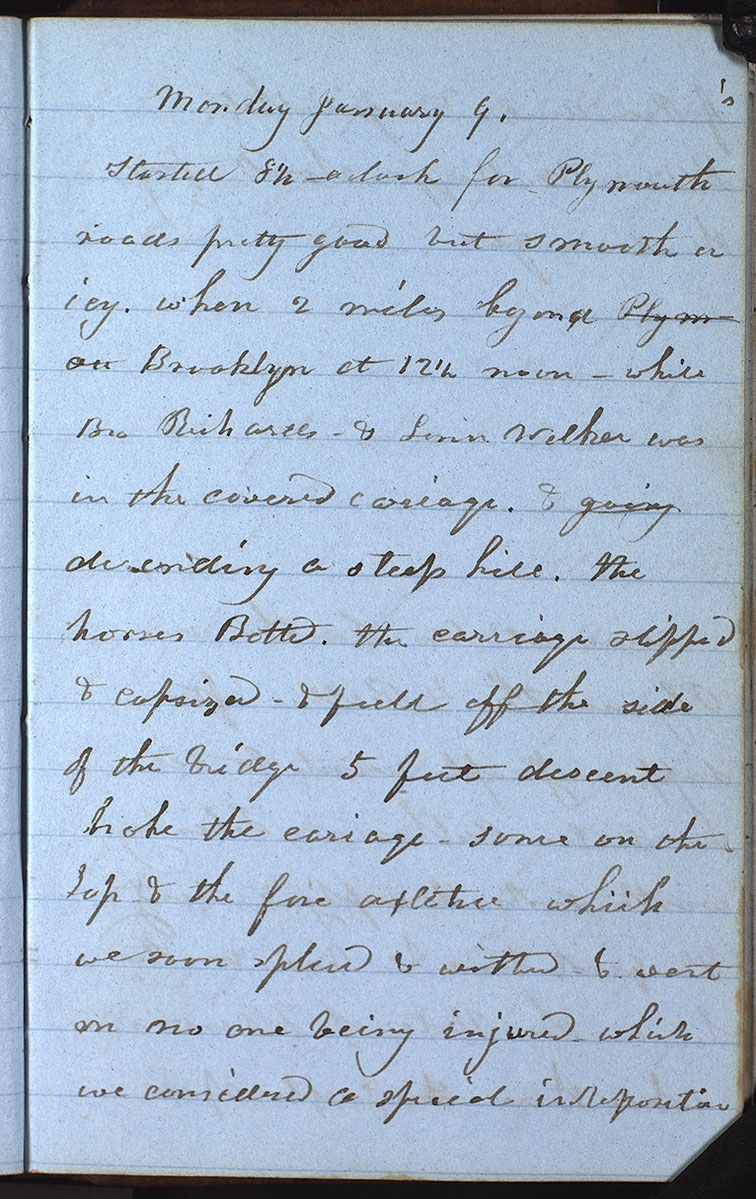 's
Monday January 9.
Started 8½ -oclock for Plymouth
roads pretty good but smooth &
icy. when 2 miles beyond Plym-
ou Brooklyn at 12½ noon - while
Bro Richareds - & Lorin Walker was
in the covered cariage. & going
decending a steep hill. the
horses Botted. the carriage slipped
& capsized - & fell off the side
of the bridge 5 feet descent
broke the cariage - some on the
top & the fore axletree whiih
we soon spliced & withed - & went
on no one being injured - which
we considered a speiid interpositin